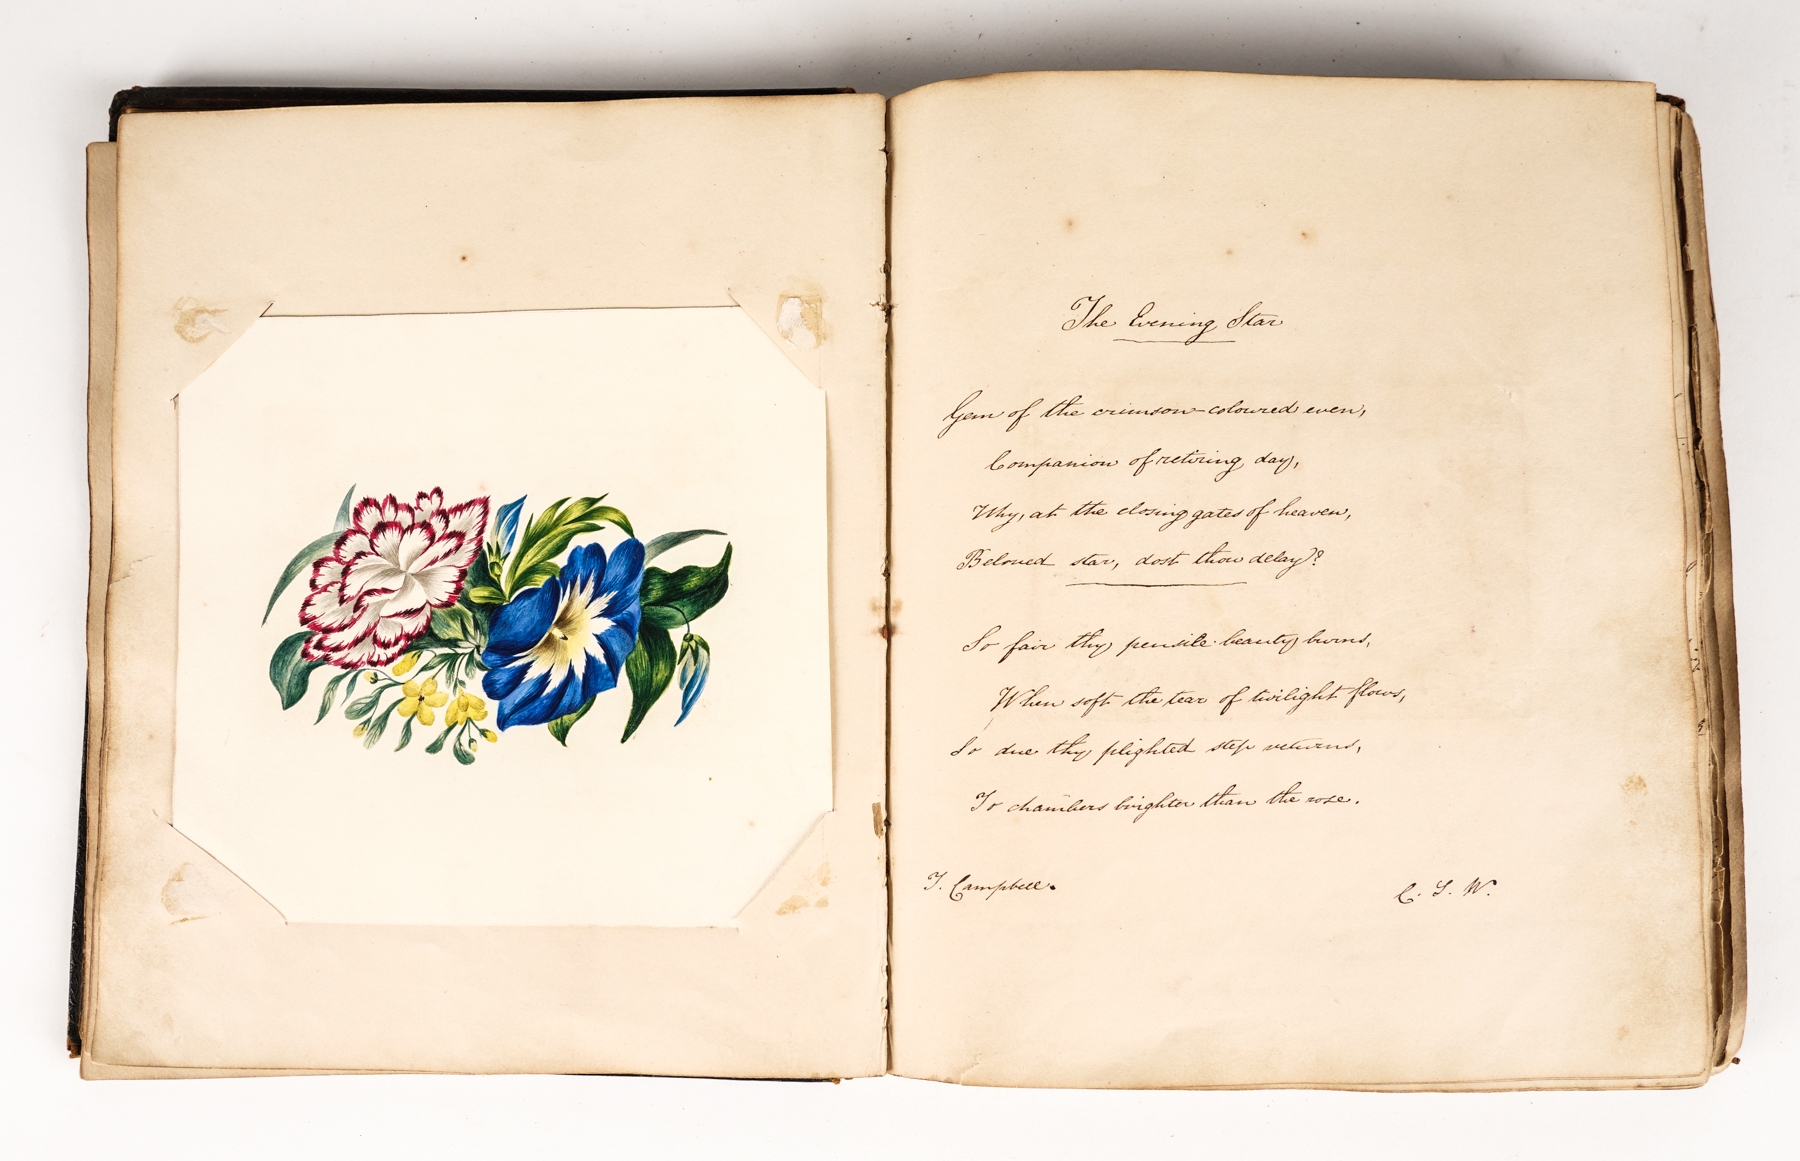 The Evening Star
Gem of the crimson-coloured even,
Companion of retiring day,
Why, at the closing gates of heaven,
Beloved star, dost thou delay?
So fair thy pensile beauty burns,
When soft the tear of twilight flows,
So due thy plighted step returns,
To chambers brighter than the rose.
T. Campbell.
C. S. W.